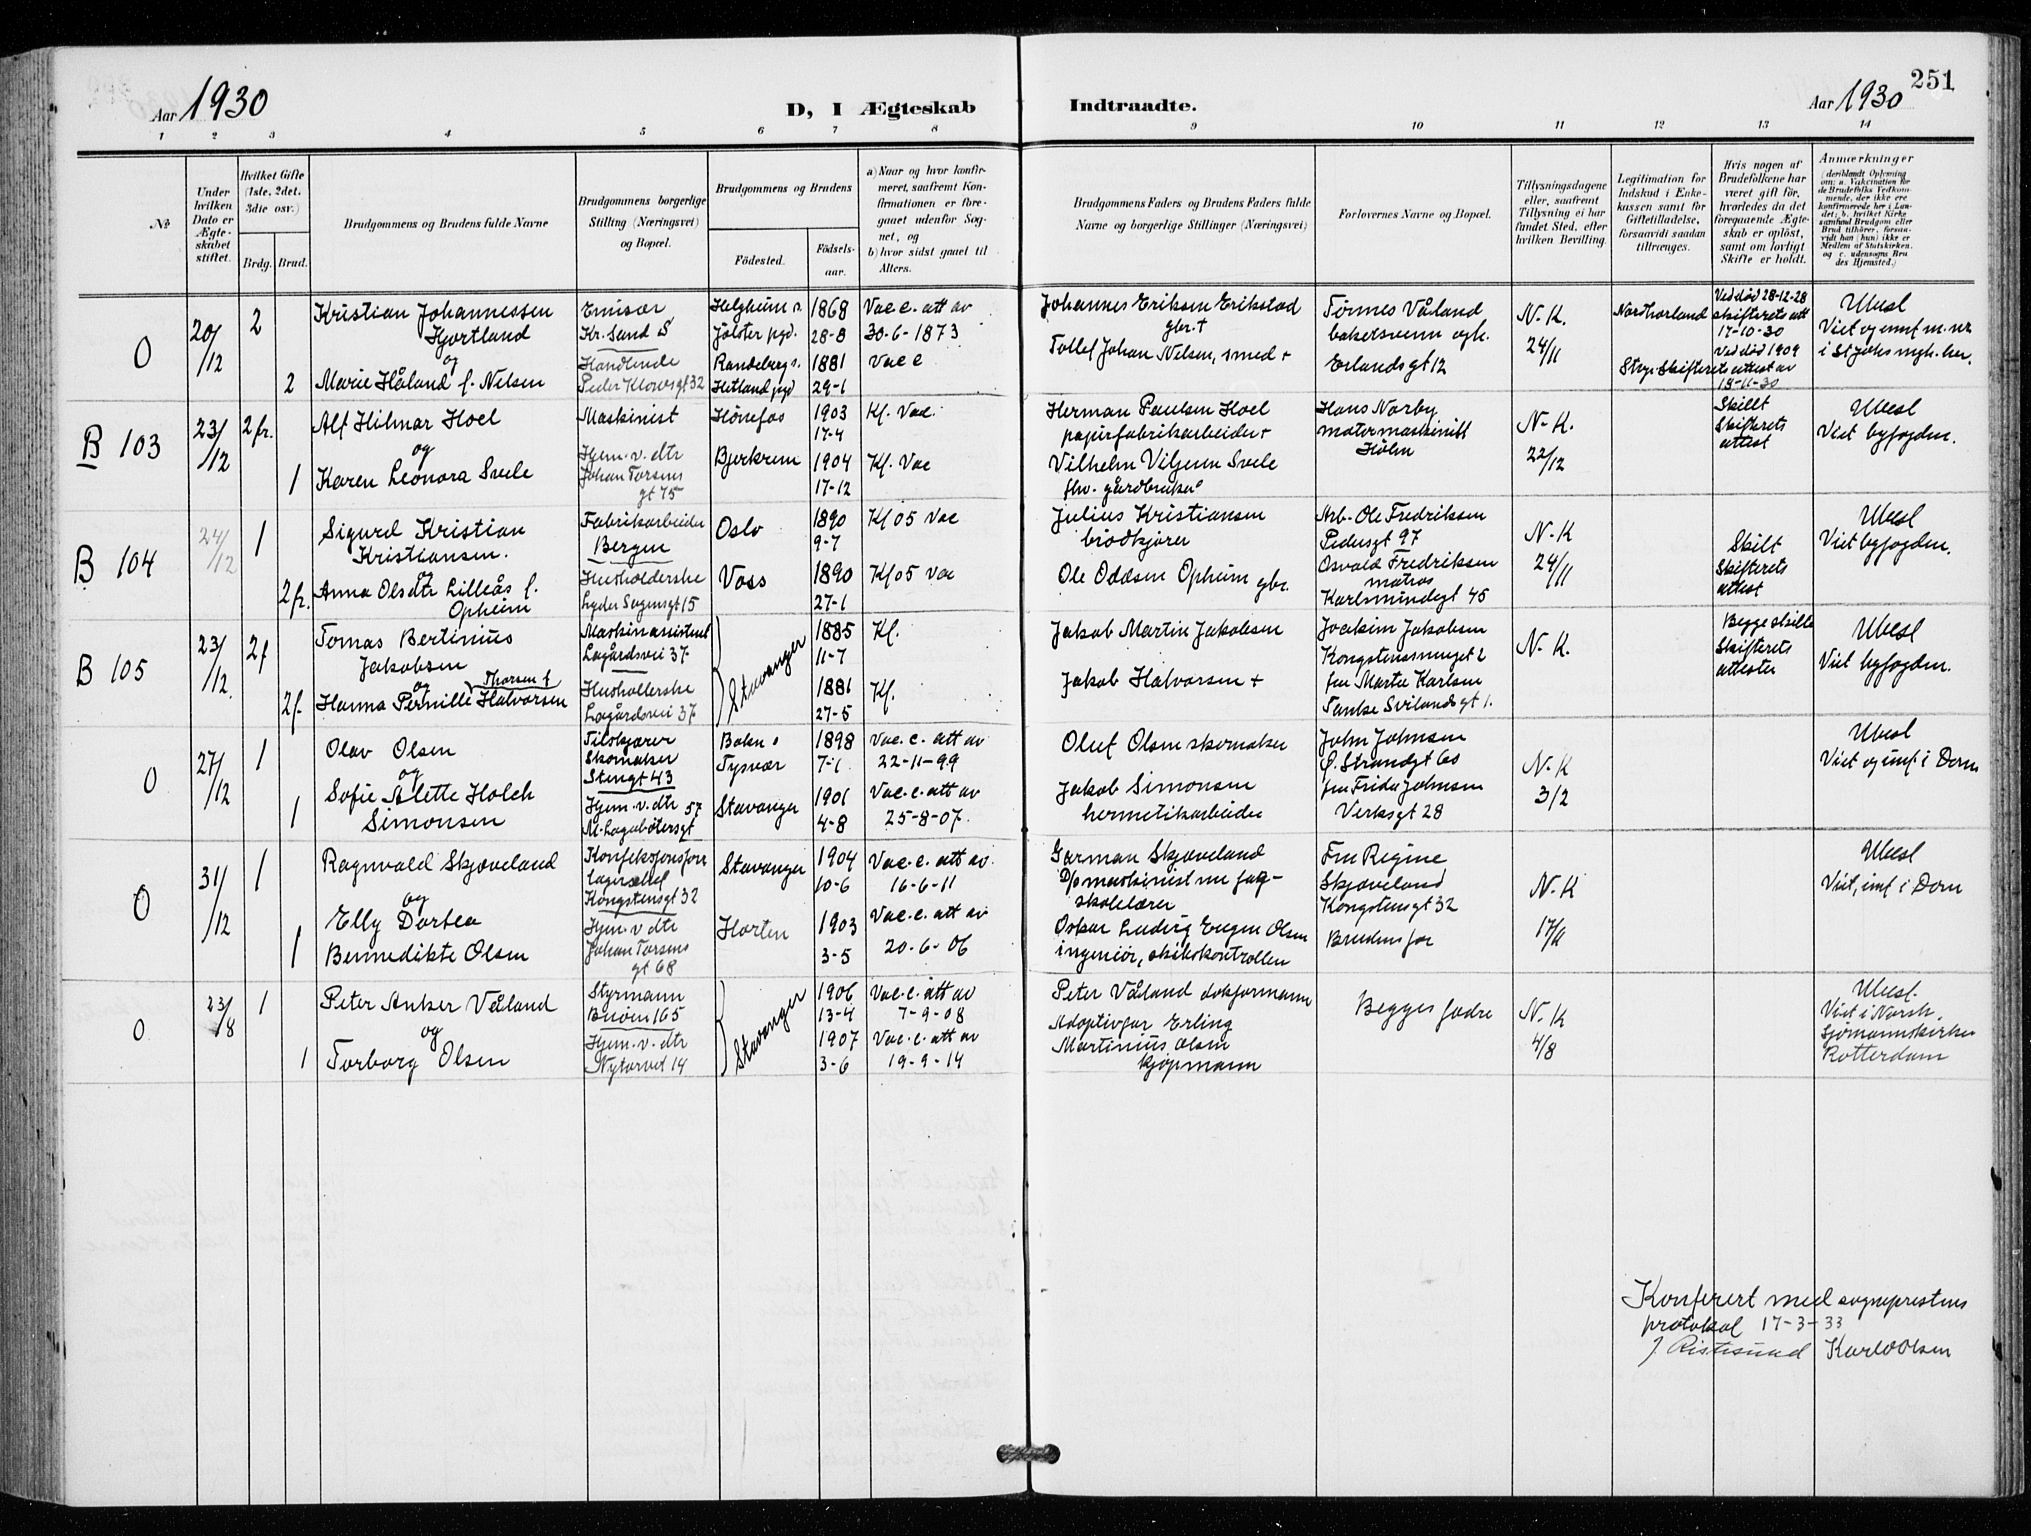 251
Aar 1930
D, I Ægteskab Indtraadte.
Aar 1930
1 2 3 4 5 6 7 8 9 10 11 12 13 14
No.
Under hvilken Dato er Ægteskabet stiftet.
Hvilket Gifte (1ste, 2det, 3die osv.)
Brdg. Brud.
Brudgommens og Brudens fulde Navne
Brudgommens borgerlige Stilling (Næringsvei) og Bopæl.
Brudgommens og Brudens
Fødested.
Fødselsaar.
a) Naar og hvor konfirmeret, saafremt Konfirmationen er foregaaet udenfor Sognet, og
b) hvor sidst gaaet til Alters.
Brudgommens Faders og Brudens Faders fulde Navne og borgerlige Stillinger (Næringsvei)
Forlovernes Navne og Bopæl.
Tillysningsdagene eller, saafremt Tillysning ei har fundet Sted, efter hvilken Bevilling.
Legitimation for Indskud i Enkekassen samt for Giftetilladelse, forsaavidt saadan tiltrænges.
Hvis nogen af Brudefolkene har været gift før, hvorledes da det foregaaende Ægteskab er opløst, samt om lovligt Skifte er holdt.
Anmærkninger (deriblandt Oplysning om: a. Vakcination for de Brudefolks Vedkommende, der ikke ere konfirmerede her i Landet; b. hvilket Kirkesamfund Brudgom eller Brud tilhører, forsaavidt han (hun) ikke er Medlem af Statskirken, og c. udensogns Brudes Hjemsted.)
O
20/12
2
Kristian Johannessen
Hjortland
og
2 Marie Håland f. Nelsen
Emisær
Kr. Sand S
Handlende
Peder Klowsgt 32
Helgheim s.
Jølster pgd.
Randeberg s.
Hetland pgd
1868
28-8
1881
29-1
Vac c. att av
30-6-1873
Vac c
Johannes Eriksen Erikstad
gbr. +
Tollef Johan Nelsen, smed +
Tønnes Våland
bakersvenn
Erlandsgt 12
N-K.
24/11
Nordhorland
Stvgr. Skifterets attest av
Ved død 28-12-28
skifterets att
17-10-30
Ved død 1909
18-11-30
Ubesl
B 103
23/12
2 fr.
Alf Hilmar Hoel
og
1 Karen Leonora Svele
Maskinist
Hjem. v. dtr
Johan Torsens
gt 75
Hønefos
Bjerkrem
1903
17-4
1904
17-12
Kf. Vac.
Kf. Vac
Herman Paulsen Hoel
papirfabrikarbeider +
Vilhelm Viljensen Svele
fhv. gårdbruker
Hans Norby
motormaskinist
Hølen
N-K.
22/12
Skilt
Skifterets
attest
Ubesl
Viet byfogden.
B 104
24/12
1
Sigurd Kristian
Kristiansen.
og
2 fr. Anna Olsdtr Lilleås f.
Opheim
Fabrikarbeider
Bergen
Husholderske
Lyder Sagensgt 15
Oslo
Voss
1890
9-7
1890
27-1
Kf 05 Vac
Kf 05 Vac
Julius Kristiansen
brødkjører
Ole Oddsen Opheim gbr.
Arb. Ole Fredriksen
Pedersgt 97
Osvald Fredriksen
matros
Karlsmindegt 45
N-K
24/11
Skilt
Skifterets
attest
Ubesl
Viet byfogden.
B 105
23/12.
2 f
Tomas Bertinius
Jakobsen
og Thorsen f
2 f. Hanna Pernille Halvorsen
Maskinassistent
Lagårdsvei 37
Husholderske
Lagårdsvei 37
Stavanger
1885
11-7
1881
27-5
Kf.
Kf.
Jakob Martin Jakobsen
Jakob Halvorsen +
Joakim Jakobsen
Kongstensmuget 2
fru Marta Karlsen
Tanke Svilandsgt 1.
N-K.
Begge skilte
Skifterets
attester
Ubesl
Viet byfogden.
O
27/12
1
Olav Olsen
og
Sofie Alette Holch
1 Simonsen
Tilskjærer
Skomaker
Stengt 43
Hjem. v. dtr 57
M. Lagabøtersgt
Bokn s
Tysvær
Stavanger
1898
7-1
1901
4-8
Vac. c. att av
22-11-99
Vac. c. att av
25-8-07.
Oluf Olsen skomaker
Jakob Simonsen
hermetikarbeider
John Johnsen
Ø. Strandgt 60
fru Frida Johnsen
Verksgt 28
N-K
3/2
Ubesl
Viet og innf. i Dom
O
31/12
1
Ragnvald Skjæveland
og
Elly Dortea
1 Bennedikte Olsen
Konfeksjonsforr
lagersjef
Kongstensgt 32
Hjem. v. dtr
Johan Torsens
gt 68
Stavanger
Horten
1904
10-6
1903
3-5
Vac. c. att av.
16-6-11
Vac. c. att av
20-6-06
German Skjæveland
D/s maskinist nu fag-
skolelærer
Oskar Ludvig Eugen Olsen
ingeniør, skibskontrollen
Fru Regine
Skjæveland
Kongstensgt 32
Brudens far
N-K
17/11
Ubesl
Viet, innf. i Dom
O
23/8
1
Peter Anker Våland
og
1 Torborg Olsen
Styrmann
Buøen 165
Hjem. v. dtr
Nytorvet 14
Stavanger
1906
13-4
1907
3-6
Vac. c. att av
7-9-08
Vac. c. att av
19-9-14
Peter Våland dokformann
Adoptivfar Erling
Martinius Olsen
kjøpmann
Begges fedre
N-K
4/8
Ubesl.
Viet i Norsk.
Sjømannskirke
Rotterdam
Konferert med sogneprestens
protokol 17-3-33
J Ristesund Karl Olsen